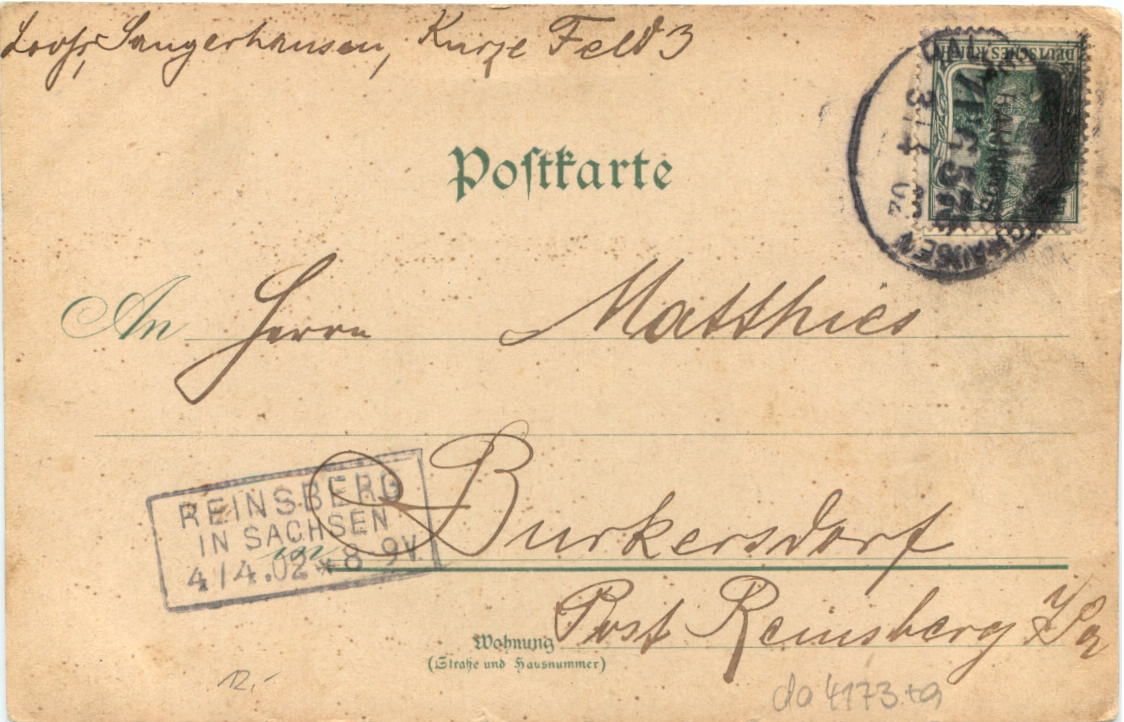 Sangerhausen, Kurze Feld 3
DEUTSCHES REICH
3 4 02
Postkarte
An Herrn Matthies
REINSBERG
IN SACHSEN
4/4.02*8-9V.
in Burkersdorf
Wohnung
(Straße und Hausnummer)
Post Reinsberg
12,-
da 4173 +a